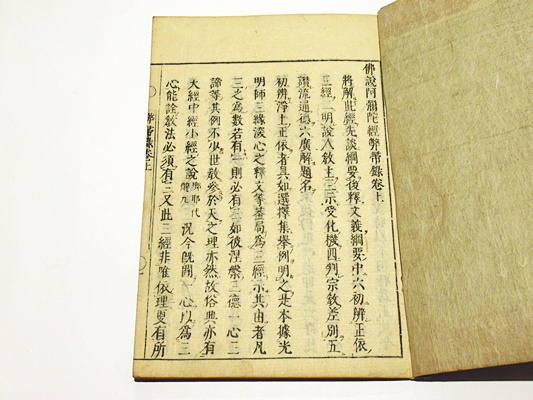 佛說阿彌陀經弊帚錄卷上
將解此經先談綱要後釋文義綱要中六初辨正依
三經二明說人敘主三示受化機四判宗教差別五
讚流通德六廣解題名
初辨淨土正依者具如選擇集舉例明之是本據光
明師三緣深心之釋文等蓋局為三經示其由者凡
三之為數若有則必有三如彼涅槃三德一心三
諦等其例不少世敎參於天之理亦然故俗典亦有
大經中經小經之說況今旣開一心以為三
心能詮敎法必須有三又此三經非唯依理更有所